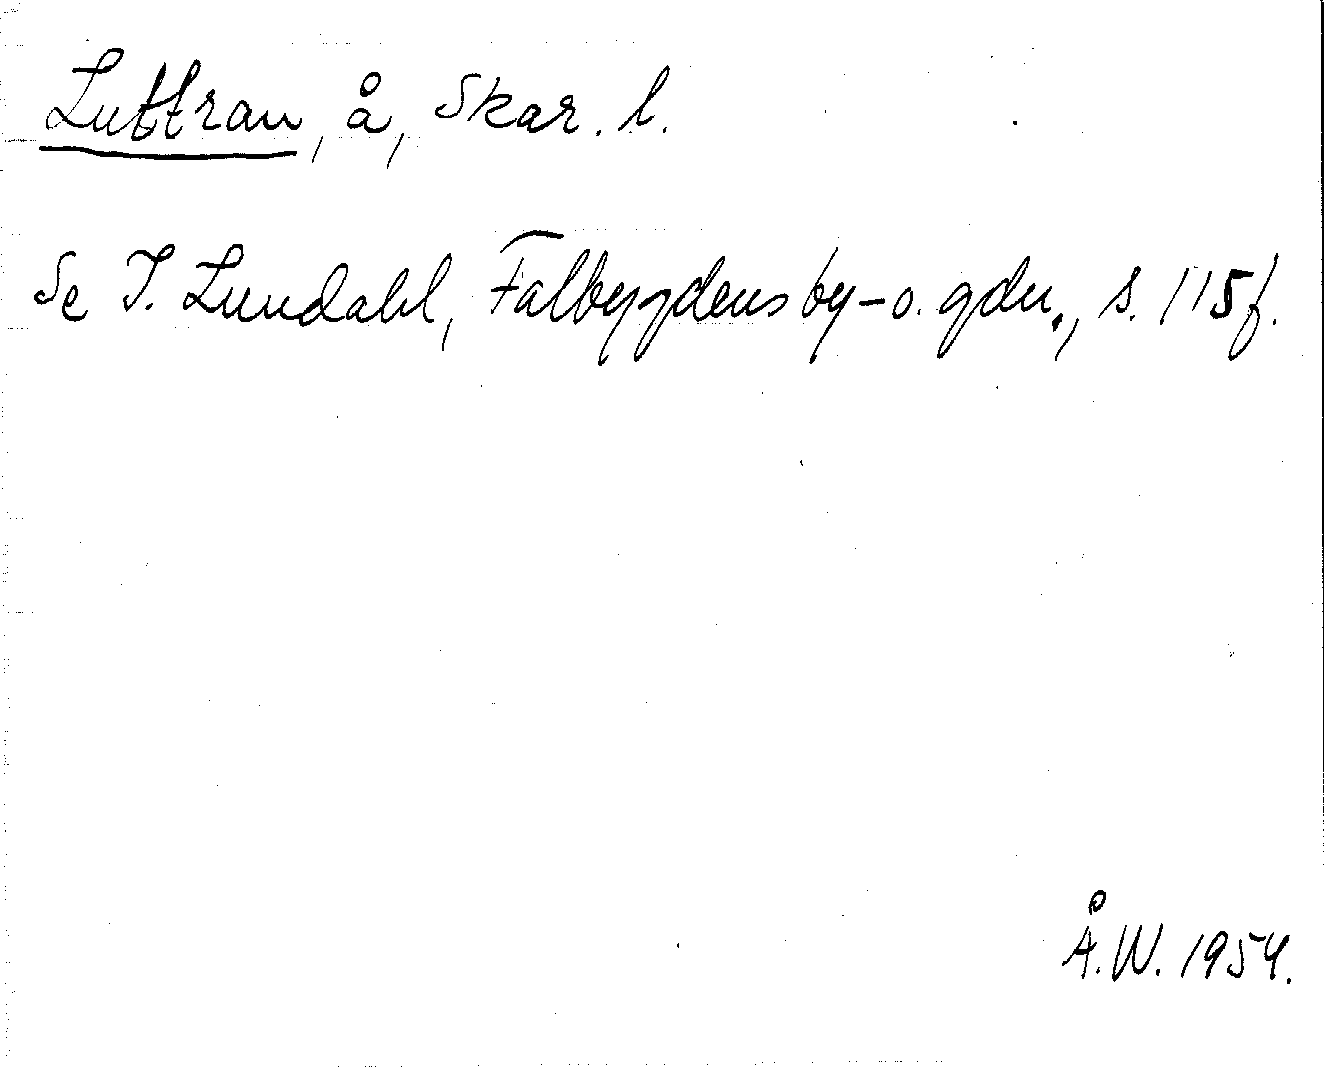 Luttran, å, Skar. l.
Se I. Lundahl, Falbygdens by- o. gdn., s. 115 f.
Å.W. 1954.